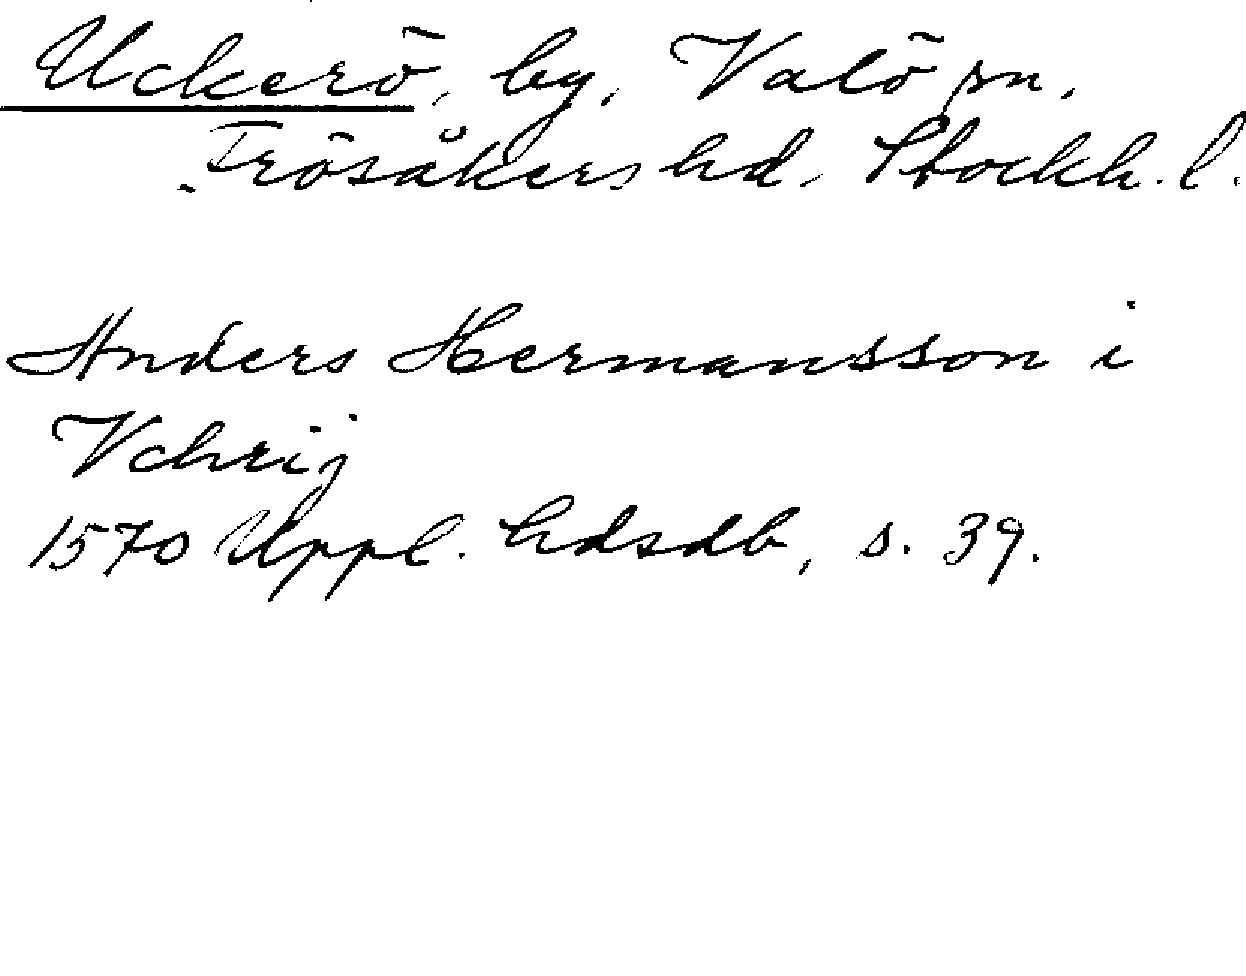 Uckerö, by, Valö sn,
Frösåkers hd, Stockh. l.
Anders Hermansson i
Vchrij
1570 Uppl. hdsdb, s. 39.